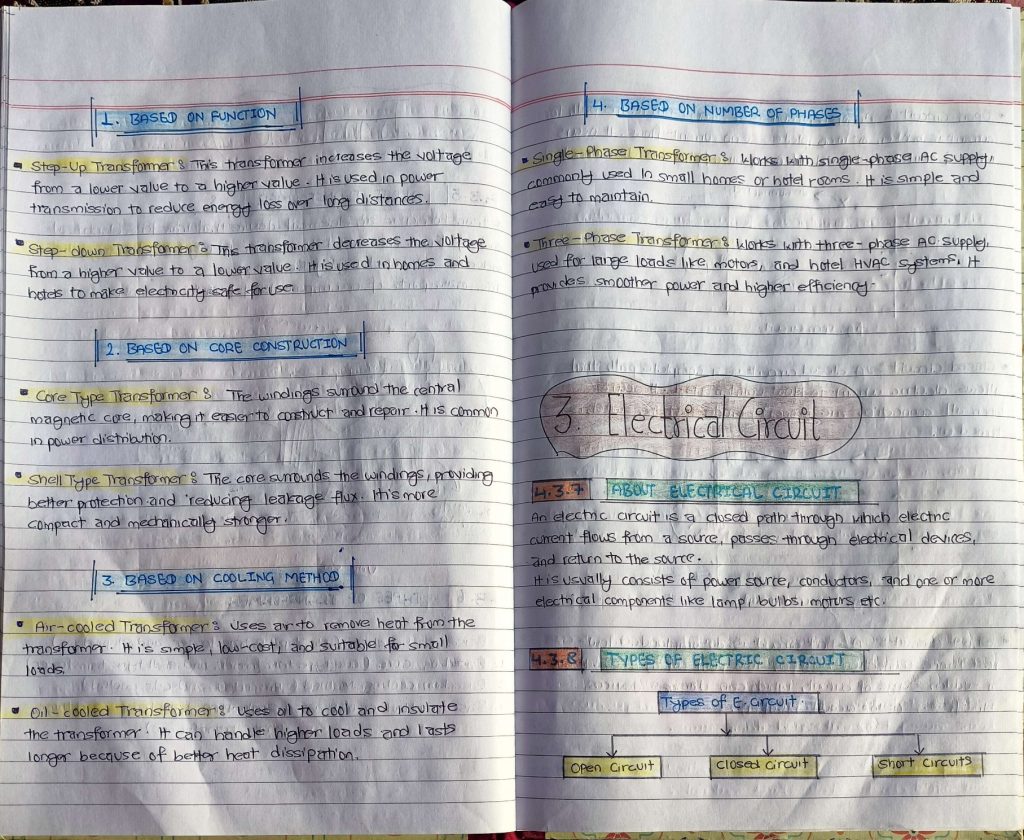 1. BASED ON FUNCTION
▪ Step-Up Transformer : This transformer increases the voltage
from a lower value to a higher value. It is used in power
transmission to reduce energy loss over long distances.
▪ Step-down Transformer : This transformer decreases the voltage
from a higher value to a lower value. It is used in homes and
hotels to make electricity safe for use.
2. BASED ON CORE CONSTRUCTION
▪ Core Type Transformer : The windings surround the central
magnetic core, making it easier to construct and repair. It is common
in power distribution.
▪ Shell Type Transformer : The core surrounds the windings, providing
better protection and reducing leakage flux. It's more
compact and mechanically stronger.
3. BASED ON COOLING METHOD
▪ Air-cooled Transformer : Uses air to remove heat from the
transformer. It is simple, low-cost, and suitable for small
loads.
▪ Oil-cooled Transformer : Uses oil to cool and insulate
the transformer. It can handle higher loads and lasts
longer because of better heat dissipation.
4. BASED ON NUMBER OF PHASES
▪ Single-Phase Transformer : Works with single-phase AC supply,
commonly used in small homes or hotel rooms. It is simple and
easy to maintain.
▪ Three-Phase Transformer : Works with three-phase AC supply,
used for large loads like motors, and hotel HVAC systems. It
provides smoother power and higher efficiency.
3. Electrical Circuit
4.3.7 ABOUT ELECTRICAL CIRCUIT
An electric circuit is a closed path through which electric
current flows from a source, passes through electrical devices,
and return to the source.
It is usually consists of power source, conductors, and one or more
electrical components like lamp, bulbs, motors etc.
4.3.8 TYPES OF ELECTRIC CIRCUIT
Types of E. Circuit.
Open Circuit Closed Circuit Short Circuits